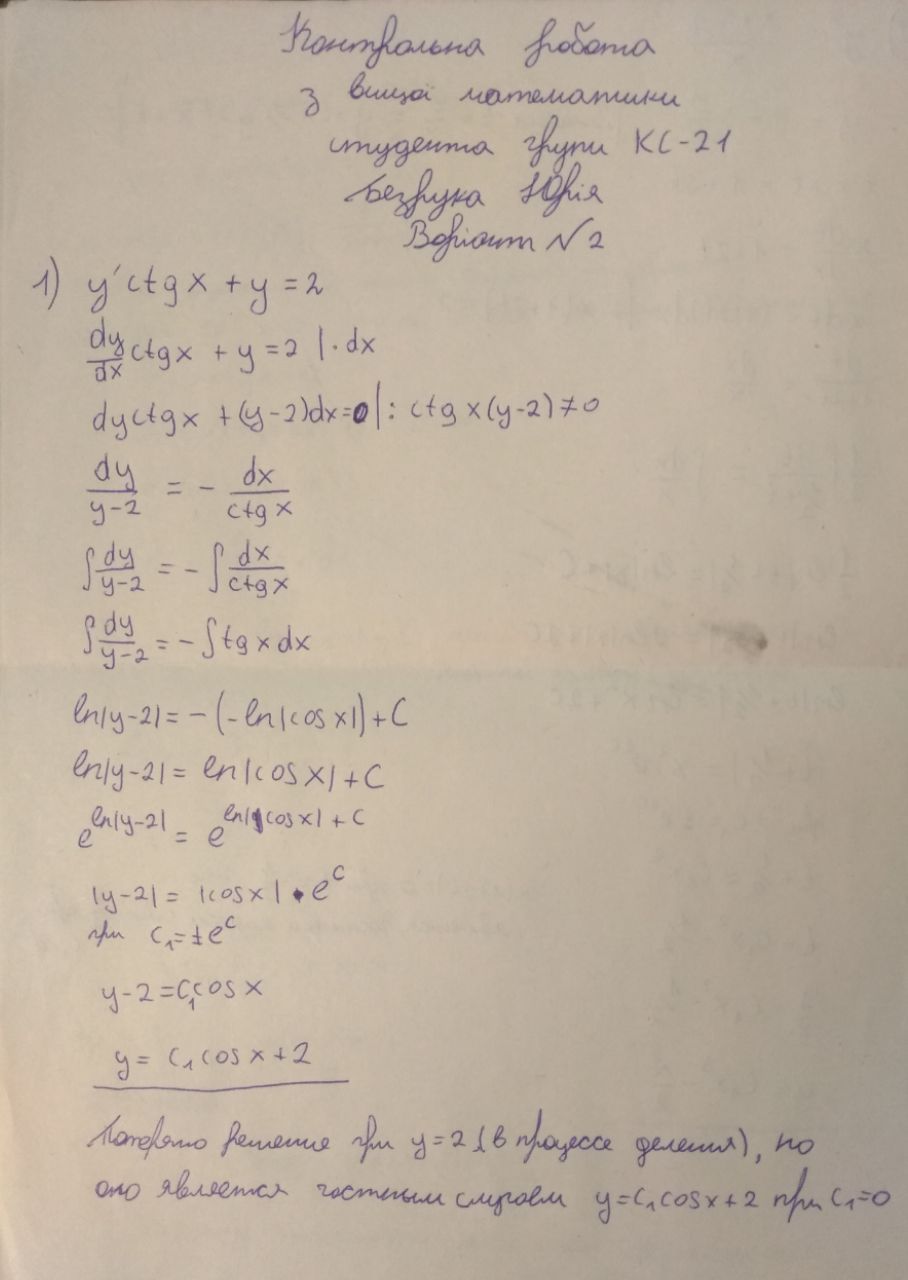 Контрольна робота
з вищої математики
студента групи КС-21
Безрука Юрія
Варіант №2
1) y' ctg x + y = 2
dy/dx ctg x + y = 2 | · dx
dy ctg x + (y-2)dx = 0 | : ctg x (y-2) ≠ 0
dy/(y-2) = - dx/(ctg x)
∫ dy/(y-2) = - ∫ dx/(ctg x)
∫ dy/(y-2) = - ∫ tg x dx
ln|y-2| = - (-ln|cos x|) + C
ln|y-2| = ln|cos x| + C
e^(ln|y-2|) = e^(ln|cos x| + C)
|y-2| = |cos x| · e^C
при C₁ = ±e^C
y-2 = C₁cos x
y = C₁ cos x + 2
Потеряно решение при y=2 (в процессе деления), но
оно является частным случаем y=C₁cos x+2 при C₁=0